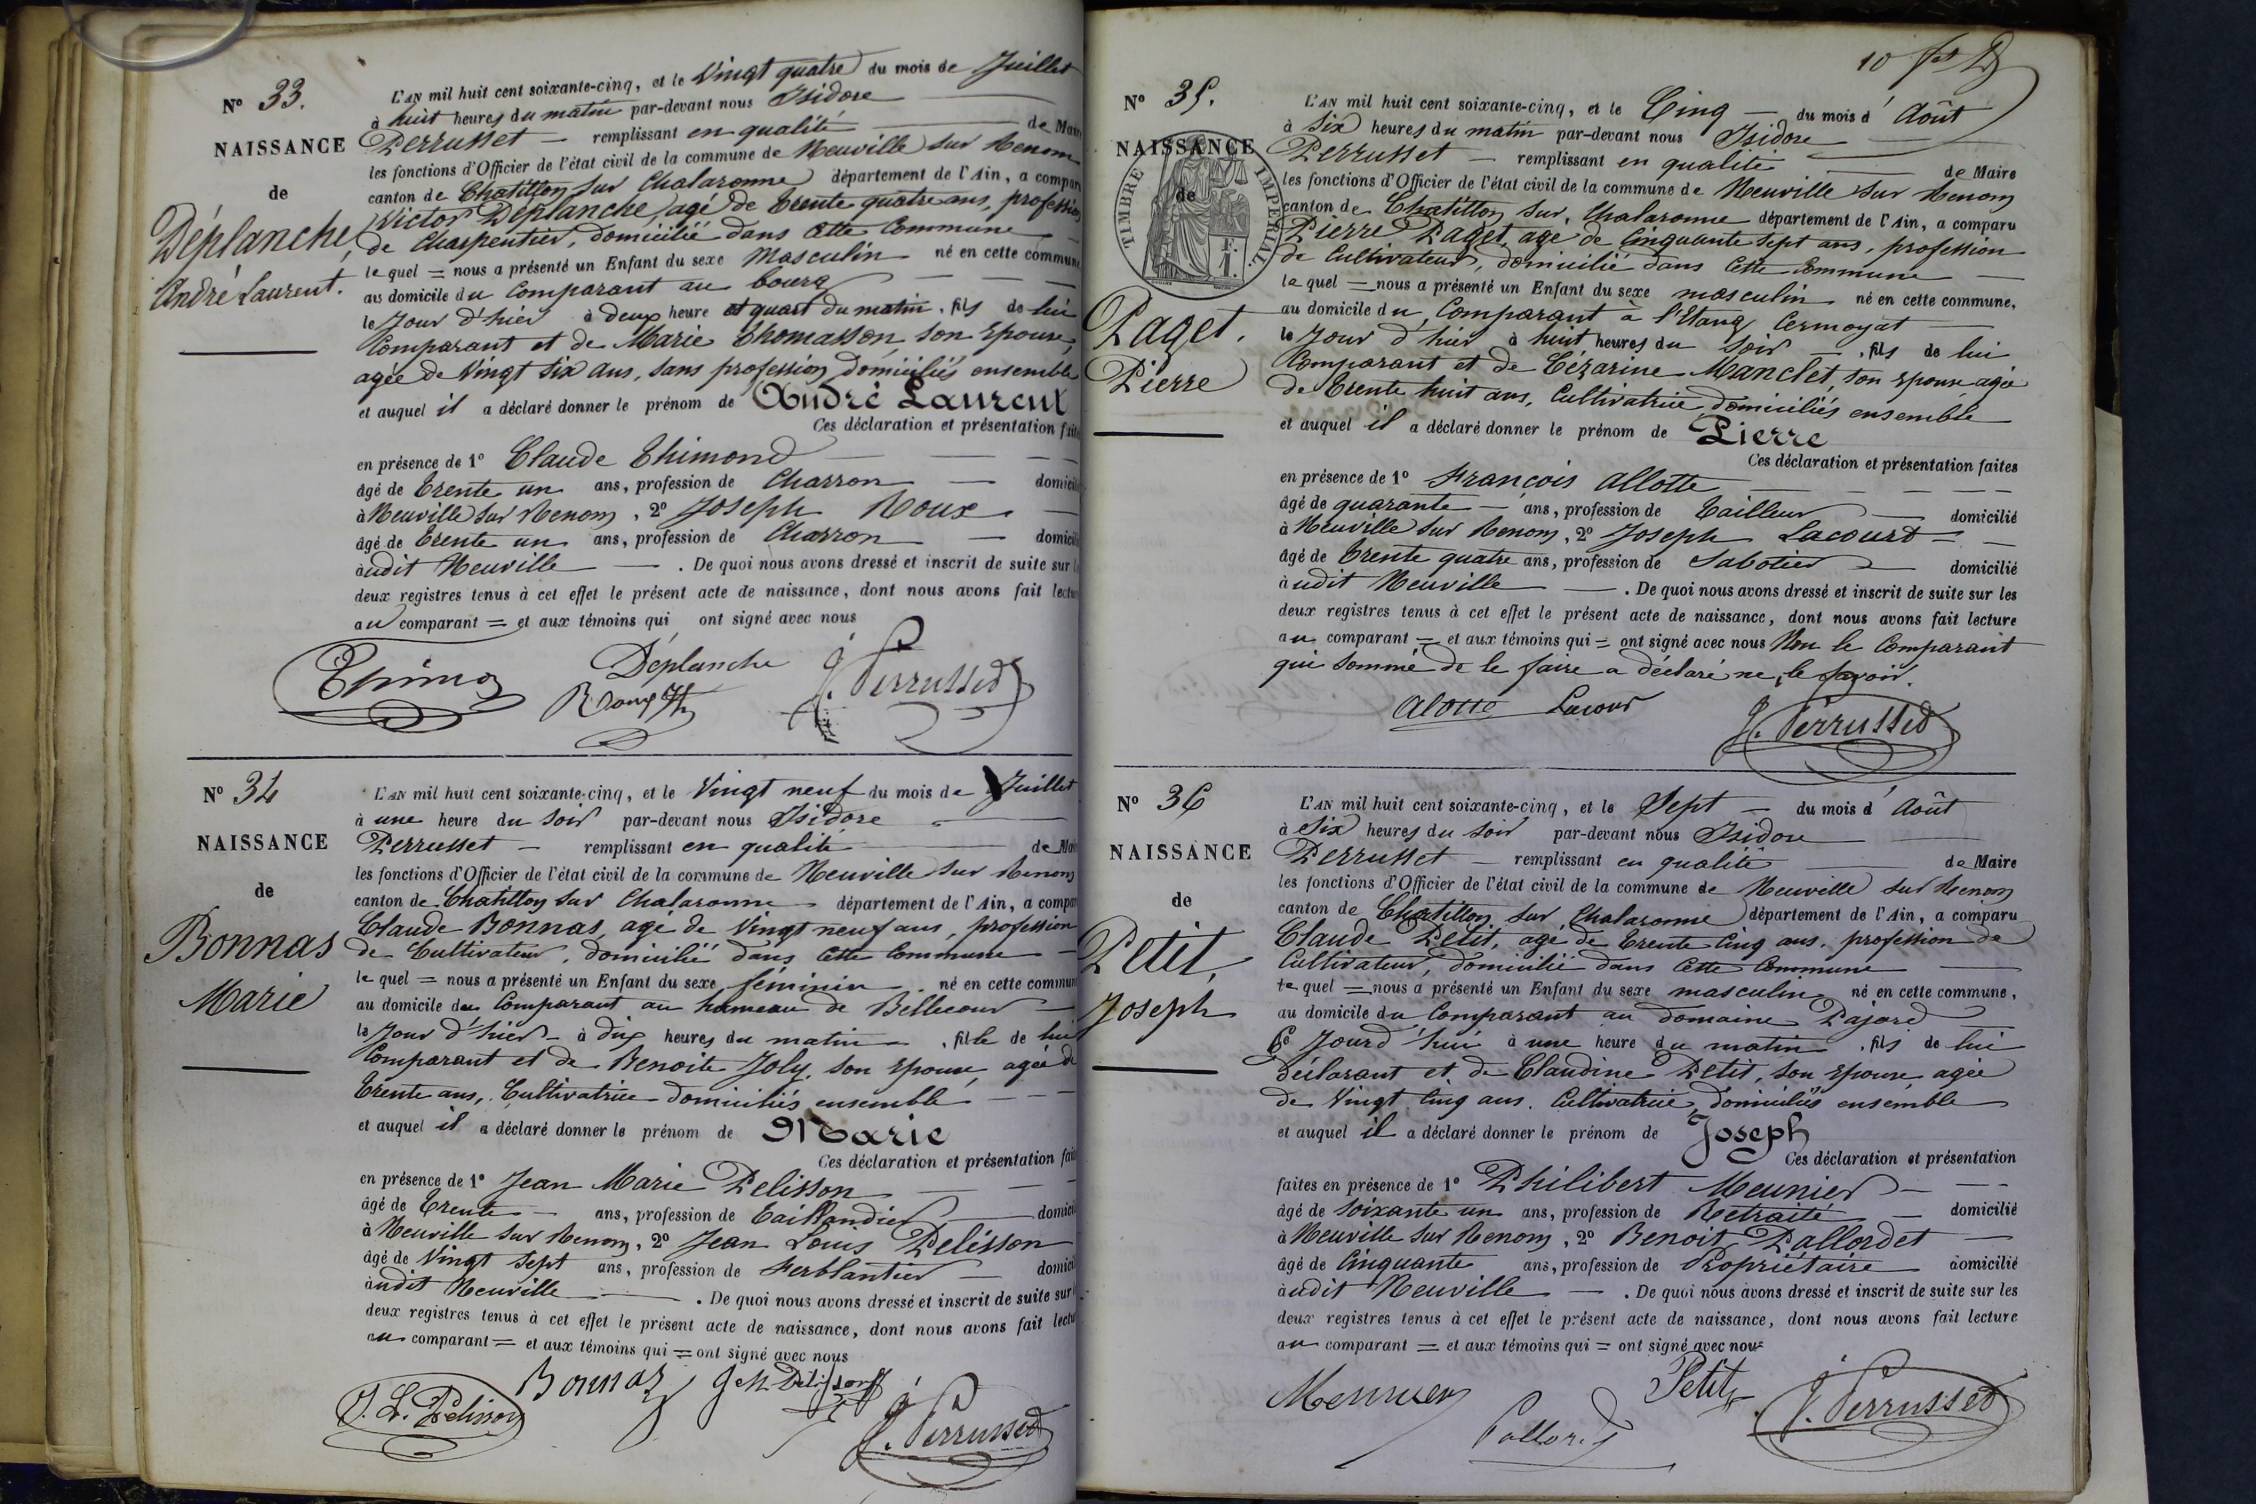 N° 33.
NAISSANCE
de
Déplanche,
André Laurent.
L'AN mil huit cent soixante-cinq, et le Vingt quatre du mois de Juillet
à huit heures du matin par-devant nous Isidore
Perrusset remplissant en qualité de Maire
les fonctions d'Officier de l'état civil de la commune de Neuville sur Renom
canton de Chatillon sur Chalaronne département de l'Ain, a compar
Victor Déplanche, agé de trente quatre ans, profession
de Charpentier, domicilié dans cette Commune
le quel = nous a présenté un Enfant du sexe Masculin né en cette commune
au domicile du Comparant au bourg
le Jour d'hier à deux heure et quart du matin, fils de lui
Comparant et de Marie Thomasson, son Epouse,
agée de Vingt six ans, sans profession, domiciliés ensemble
et auquel il a déclaré donner le prénom de André Laurent
Ces déclaration et présentation faite
en présence de 1° Claude Thimond
âgé de trente un ans, profession de Charron domicilié
à Neuville sur Renom, 2° Joseph Roux
âgé de trente un ans, profession de Charron domicilié
àudit Neuville. De quoi nous avons dressé et inscrit de suite sur le
deux registres tenus à cet effet le présent acte de naissance, dont nous avons fait lectur
au comparant = et aux témoins qui ont signé avec nous
Déplanche
J. Perrusset
N° 34
NAISSANCE
de
Bonnas
Marie
L'AN mil huit cent soixante-cinq, et le Vingt neuf du mois de Juillet
à une heure du Soir par-devant nous Isidore
Perrusset remplissant en qualité de Mai
les fonctions d'Officier de l'état civil de la commune de Neuville sur Renom
canton de Chatillon sur Chalaronne département de l'Ain, a compar
Claude Bonnas, agé de Vingt neuf ans, profession
de Cultivateur, domicilié dans cette Commune
le quel = nous a présenté un Enfant du sexe féminin né en cette commun
au domicile du Comparant au hameau de Bellecour
le Jour d'hier à dix heures du matin, fille de lui
Comparant et de Benoite Joly, son épouse, agée de
Trente ans, Cultivatrice domiciliés ensemble
et auquel il a déclaré donner le prénom de Marie
Ces déclaration et présentation fait
en présence de 1° Jean Marie Pelisson
âgé de trente ans, profession de Taillandier domicilié
à Neuville sur Renom, 2° Jean Louis Pelisson
âgé de Vingt sept ans, profession de Ferblantier domicilié
àudit Neuville. De quoi nous avons dressé et inscrit de suite sur l
deux registres tenus à cet effet le présent acte de naissance, dont nous avons fait lectu
au comparant = et aux témoins qui = ont signé avec nous
J. L. Pelisson Bonnas
J. Perrusset
N° 35.
NAISSANCE
de
TIMBRE IMPÉRIAL
Paget.
Pierre
L'AN mil huit cent soixante-cinq, et le Cinq du mois d'Août
à Six heures du matin par-devant nous Isidore
Perrusset remplissant en qualité de Maire
les fonctions d'Officier de l'état civil de la commune de Neuville sur Renom
canton de Chatillon sur Chalaronne département de l'Ain, a comparu
Pierre Paget, agé de Cinquante sept ans, profession
de Cultivateur, domicilié dans Cette Commune
le quel = nous a présenté un Enfant du sexe masculin né en cette commune,
au domicile du Comparant à l'Etang Cermoyat
le Jour d'hier à huit heures du Soir, fils de lui
Comparant et de Cézarine Manclet, son épouse agée
de Trente huit ans, Cultivatrice, domiciliés ensemble
et auquel il a déclaré donner le prénom de Pierre
Ces déclaration et présentation faites
en présence de 1° François Allotte
âgé de quarante ans, profession de Tailleur domicilié
à Neuville sur Renom, 2° Joseph Lacourt
âgé de trente quatre ans, profession de Sabotier domicilié
àudit Neuville. De quoi nous avons dressé et inscrit de suite sur les
deux registres tenus à cet effet le présent acte de naissance, dont nous avons fait lecture
au comparant = et aux témoins qui = ont signé avec nous Non le Comparant
qui sommé de le faire a déclaré ne le savoir.
alotte Lacour
J. Perrusset
N° 36
NAISSANCE
de
Petit,
Joseph
L'AN mil huit cent soixante-cinq, et le Sept du mois d'Août
à Six heures du Soir par-devant nous Isidore
Perrusset remplissant en qualité de Maire
les fonctions d'Officier de l'état civil de la commune de Neuville sur Renom
canton de Chatillon sur Chalaronne département de l'Ain, a comparu
Claude Petit, agé de trente cinq ans, profession de
Cultivateur, domicilié dans Cette Commune
le quel = nous a présenté un Enfant du sexe masculin né en cette commune,
au domicile du Comparant au domaine Pajord
Ce Jourd'hui à une heure du matin, fils de lui
Déclarant et de Claudine Petit, son épouse, agée
de Vingt Cinq ans, Cultivatrice, domiciliés ensemble
et auquel il a déclaré donner le prénom de Joseph
Ces déclaration et présentation
faites en présence de 1° Philibert Meunier
âgé de soixante un ans, profession de Retraité domicilié
à Neuville sur Renom, 2° Benoit Pallordet
âgé de Cinquante ans, profession de Propriétaire domicilié
àudit Neuville. De quoi nous avons dressé et inscrit de suite sur les
deux registres tenus à cet effet le présent acte de naissance, dont nous avons fait lecture
au comparant = et aux témoins qui = ont signé avec nous
Petit
J. Perrusset